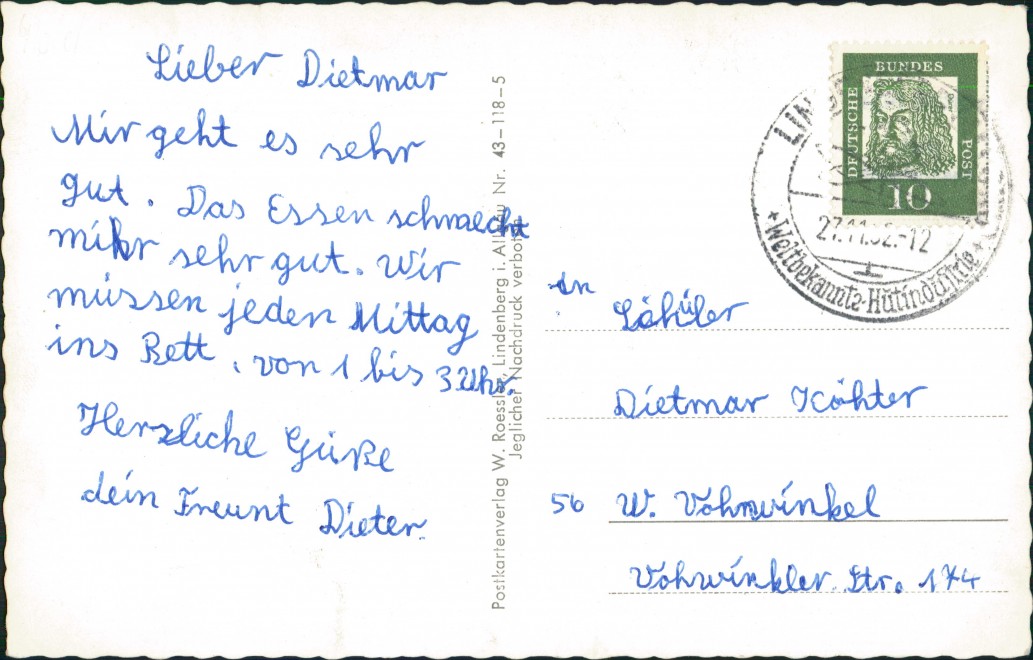 Lieber Dietmar
Mir geht es sehr
gut. Das Essen schmaecht
mihr sehr gut. Wir
müssen jeden Mittag
ins Bett, von 1 bis 3 Uhr.
Herzliche Grüße
dein Freunt Dieter.
Postkartenverlag W. Roessler, Lindenberg i. Allgäu Nr. 43–118–5
Jeglicher Nachdruck verboten
DEUTSCHE
BUNDES
POST
10
27.11.62.-12
* Weltbekannte Hutindustrie *
An
Schüler
Dietmar Köhter
56 W. Vohwinkel
Vohwinkler Str. 174